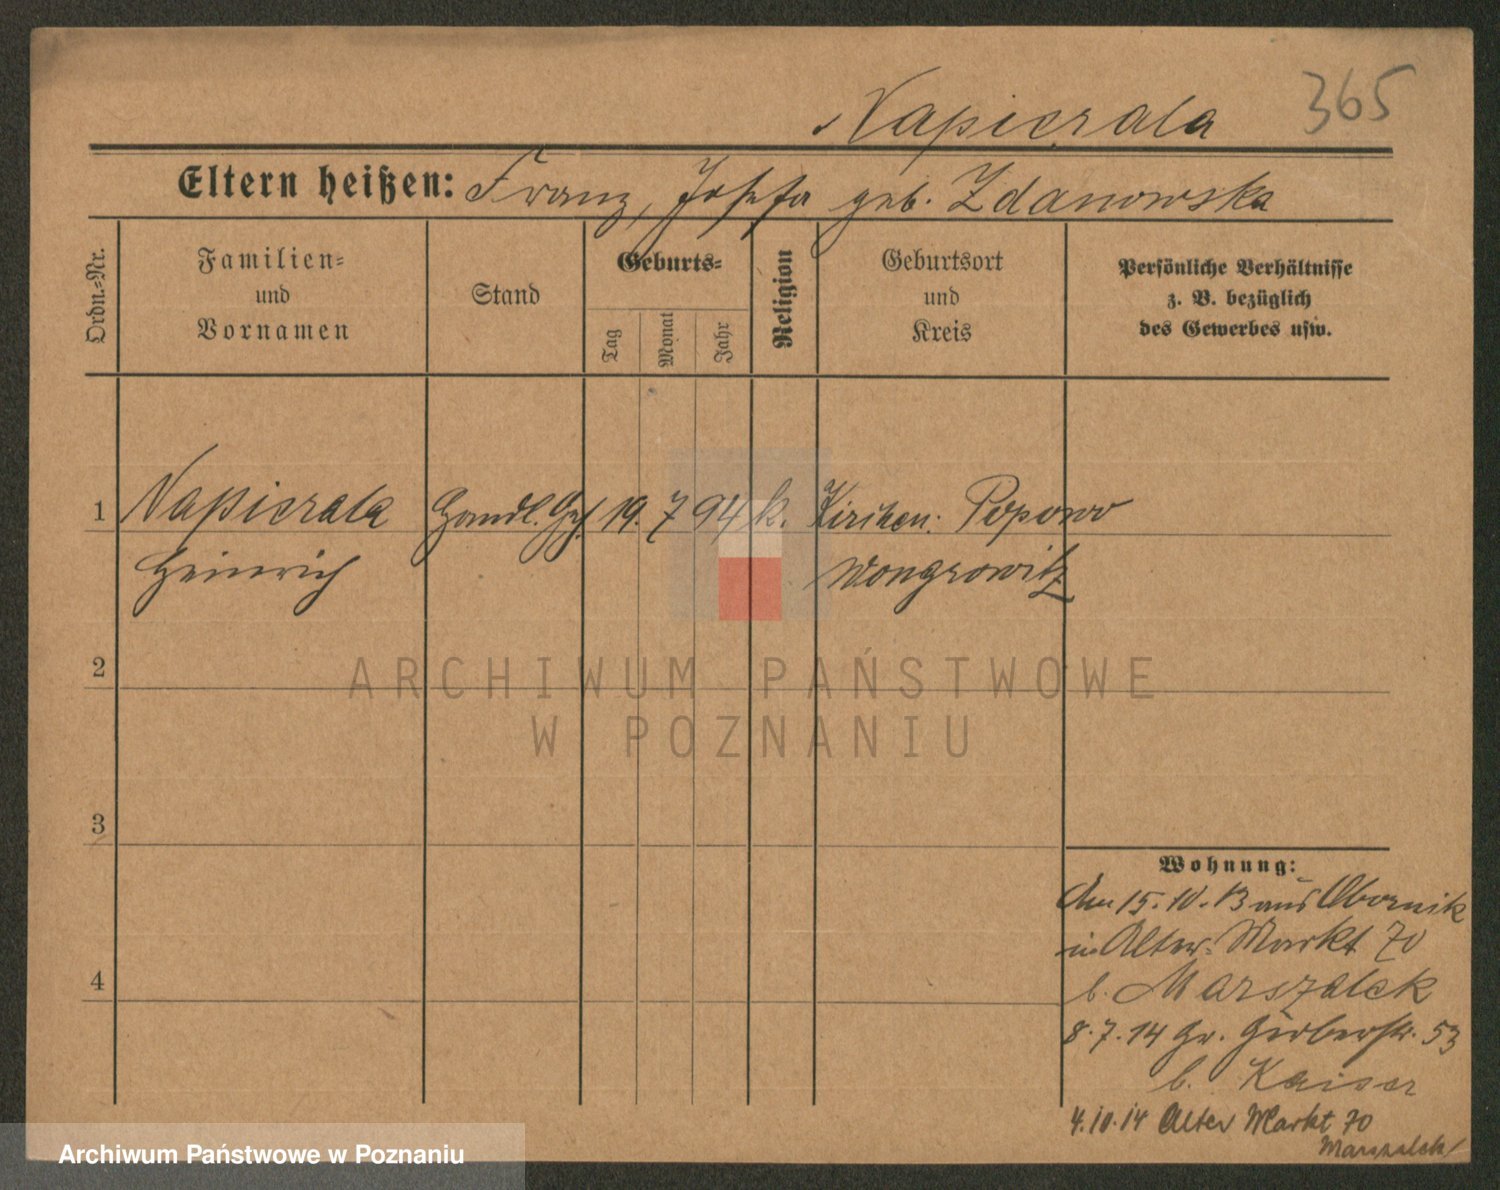 365
Napierala
Eltern heißen: Franz, Josefa geb. Zdanowska
Ordn.-Nr.
Familien-
und
Vornamen
Stand
Geburts-
Tag
Monat
Jahr
Religion
Geburtsort
und
Kreis
Persönliche Verhältnisse
z. B. bezüglich
des Gewerbes usw.
1 Napierala Handl. Geh. 19. 7 94 k. Kirchen: Popowo
Heinrich Wongrowitz
2
ARCHIWUM PAŃSTWOWE
W POZNANIU
3
Wohnung:
Am 15.10.13 aus Obornik
in Alter Markt 70
b. Marszalek
4
8.7.14 Gr. Gerberstr. 53
b. Kaiser
4.10.14 Alter Markt 70
Marszalek
Archiwum Państwowe w Poznaniu